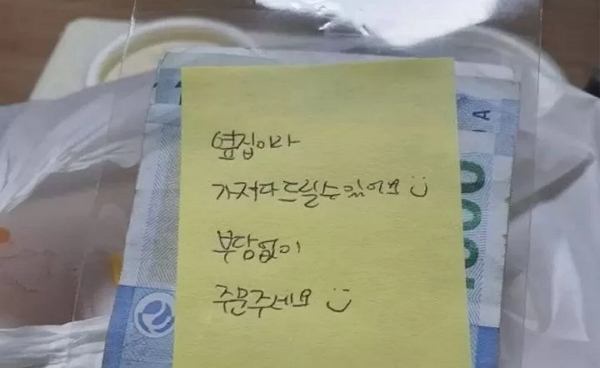 옆집이라
가져다 드릴수 있어요
부담없이
주문주세요